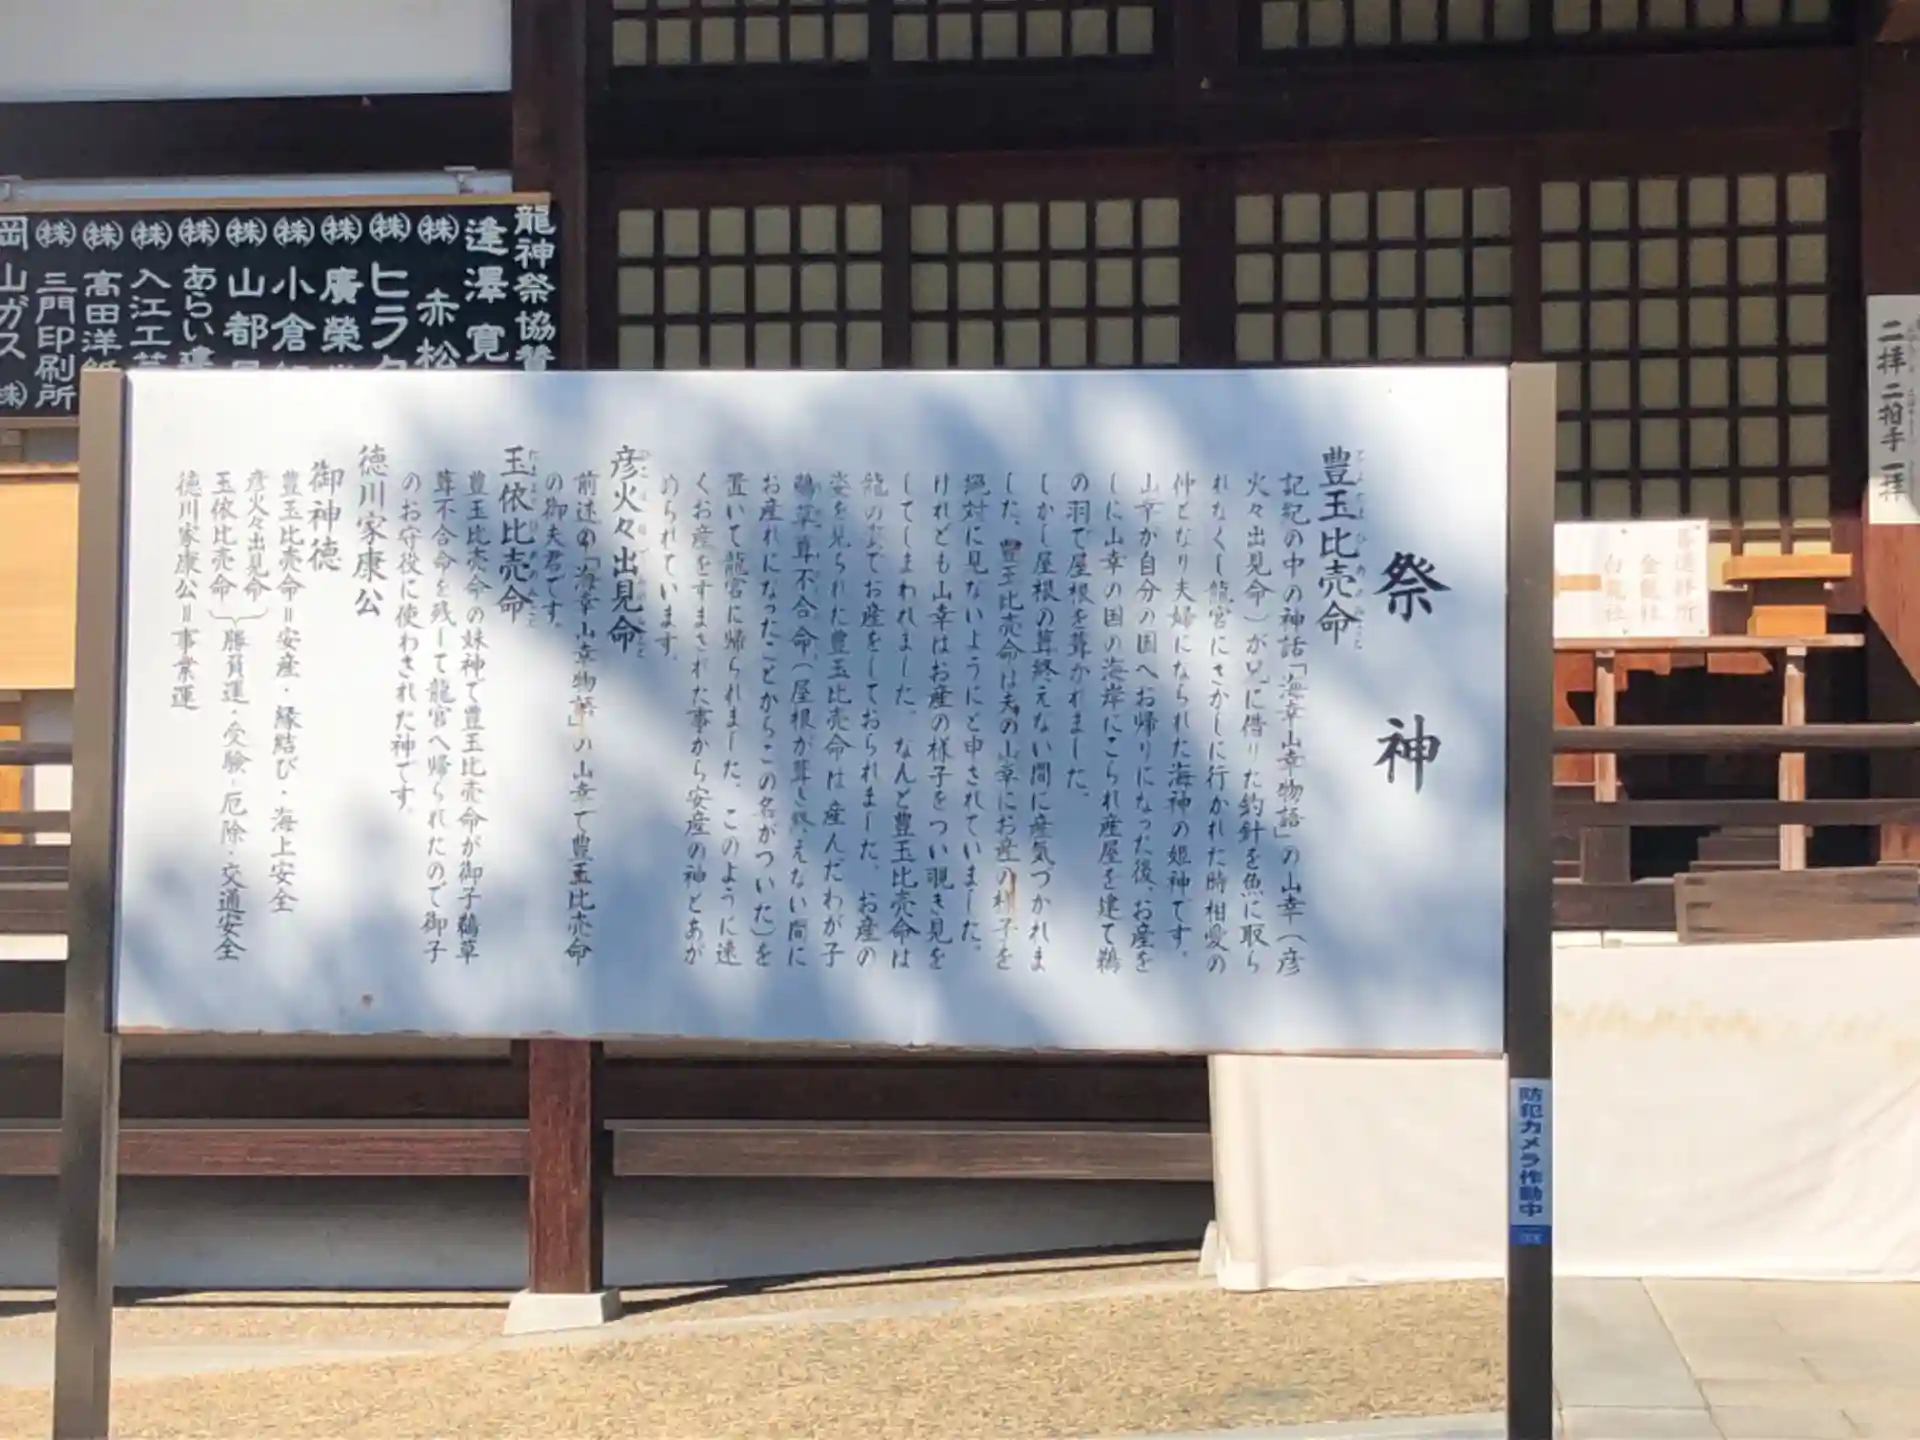 祭神
豊玉比売命
とよたまひめのみこと
記紀の中の神話「海幸山幸物語」の山幸(彦
火々出見命)が兄に借りた釣針を魚に取ら
れなくし龍宮にさがしに行かれた時相愛の
仲となり夫婦になられた海神の姫神です。
山幸が自分の国へお帰りになった後、お産を
しに山幸の国の海岸にこられ産屋を建て鵜
の羽で屋根を葺かれました。
しかし屋根の葺終えない間に産気づかれま
した。豊玉比売命は夫の山幸にお産の様子を
絶対に見ないようにと申されていました。
けれども山幸はお産の様子をつい覗き見を
してしまわれました。なんと豊玉比売命は
龍の姿でお産をしておられました。お産の
姿を見られた豊玉比売命は産んだわが子
鵜草葺不合命(屋根が葺き終えない間に
お産れになったことからこの名がついた)を
置いて龍宮に帰られました。このように速
くお産をすまされた事から安産の神とあが
められています。
彦火々出見命
ひこほほでみのみこと
前述の「海幸山幸物語」の山幸で豊玉比売命
の御夫君です。
玉依比売命
たまよりひめのみこと
豊玉比売命の妹神で豊玉比売命が御子鵜草
葺不合命を残して龍宮へ帰られたので御子
のお守役に使わされた神です。
徳川家康公
御神徳
豊玉比売命=安産・縁結び・海上安全
彦火々出見命
玉依比売命
勝負運・受験・厄除・交通安全
徳川家康公=事業運
龍神祭協賛
逢澤寛
㈱赤松
㈱ヒラタ
㈱廣榮
㈱小倉
㈱山都
㈱あらい
㈱入江工芸
㈱高田洋紙
㈱三門印刷所
岡山ガス㈱
二拝二拍手一拝
金龍社
白龍社
防犯カメラ作動中